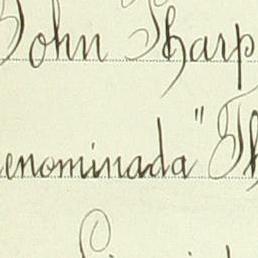 John Tharp
enominada "Th